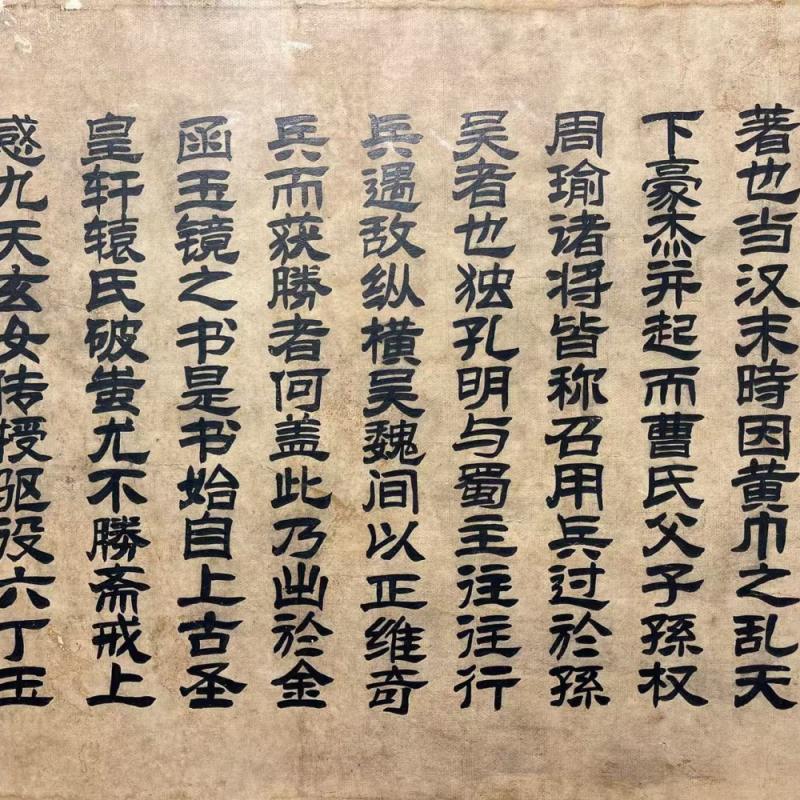 著也当汉末時因黄巾之乱天
下豪杰并起而曹氏父子孫权
周瑜诸将皆称召用兵过於孫
吴者也独孔明与蜀主往往行
兵遇敌纵横吴魏间以正维奇
兵而获勝者何盖此乃出於金
函玉镜之书是书始自上古圣
皇轩辕氏破蚩尤不勝斋戒上
感九天玄女传授驱役六丁玉